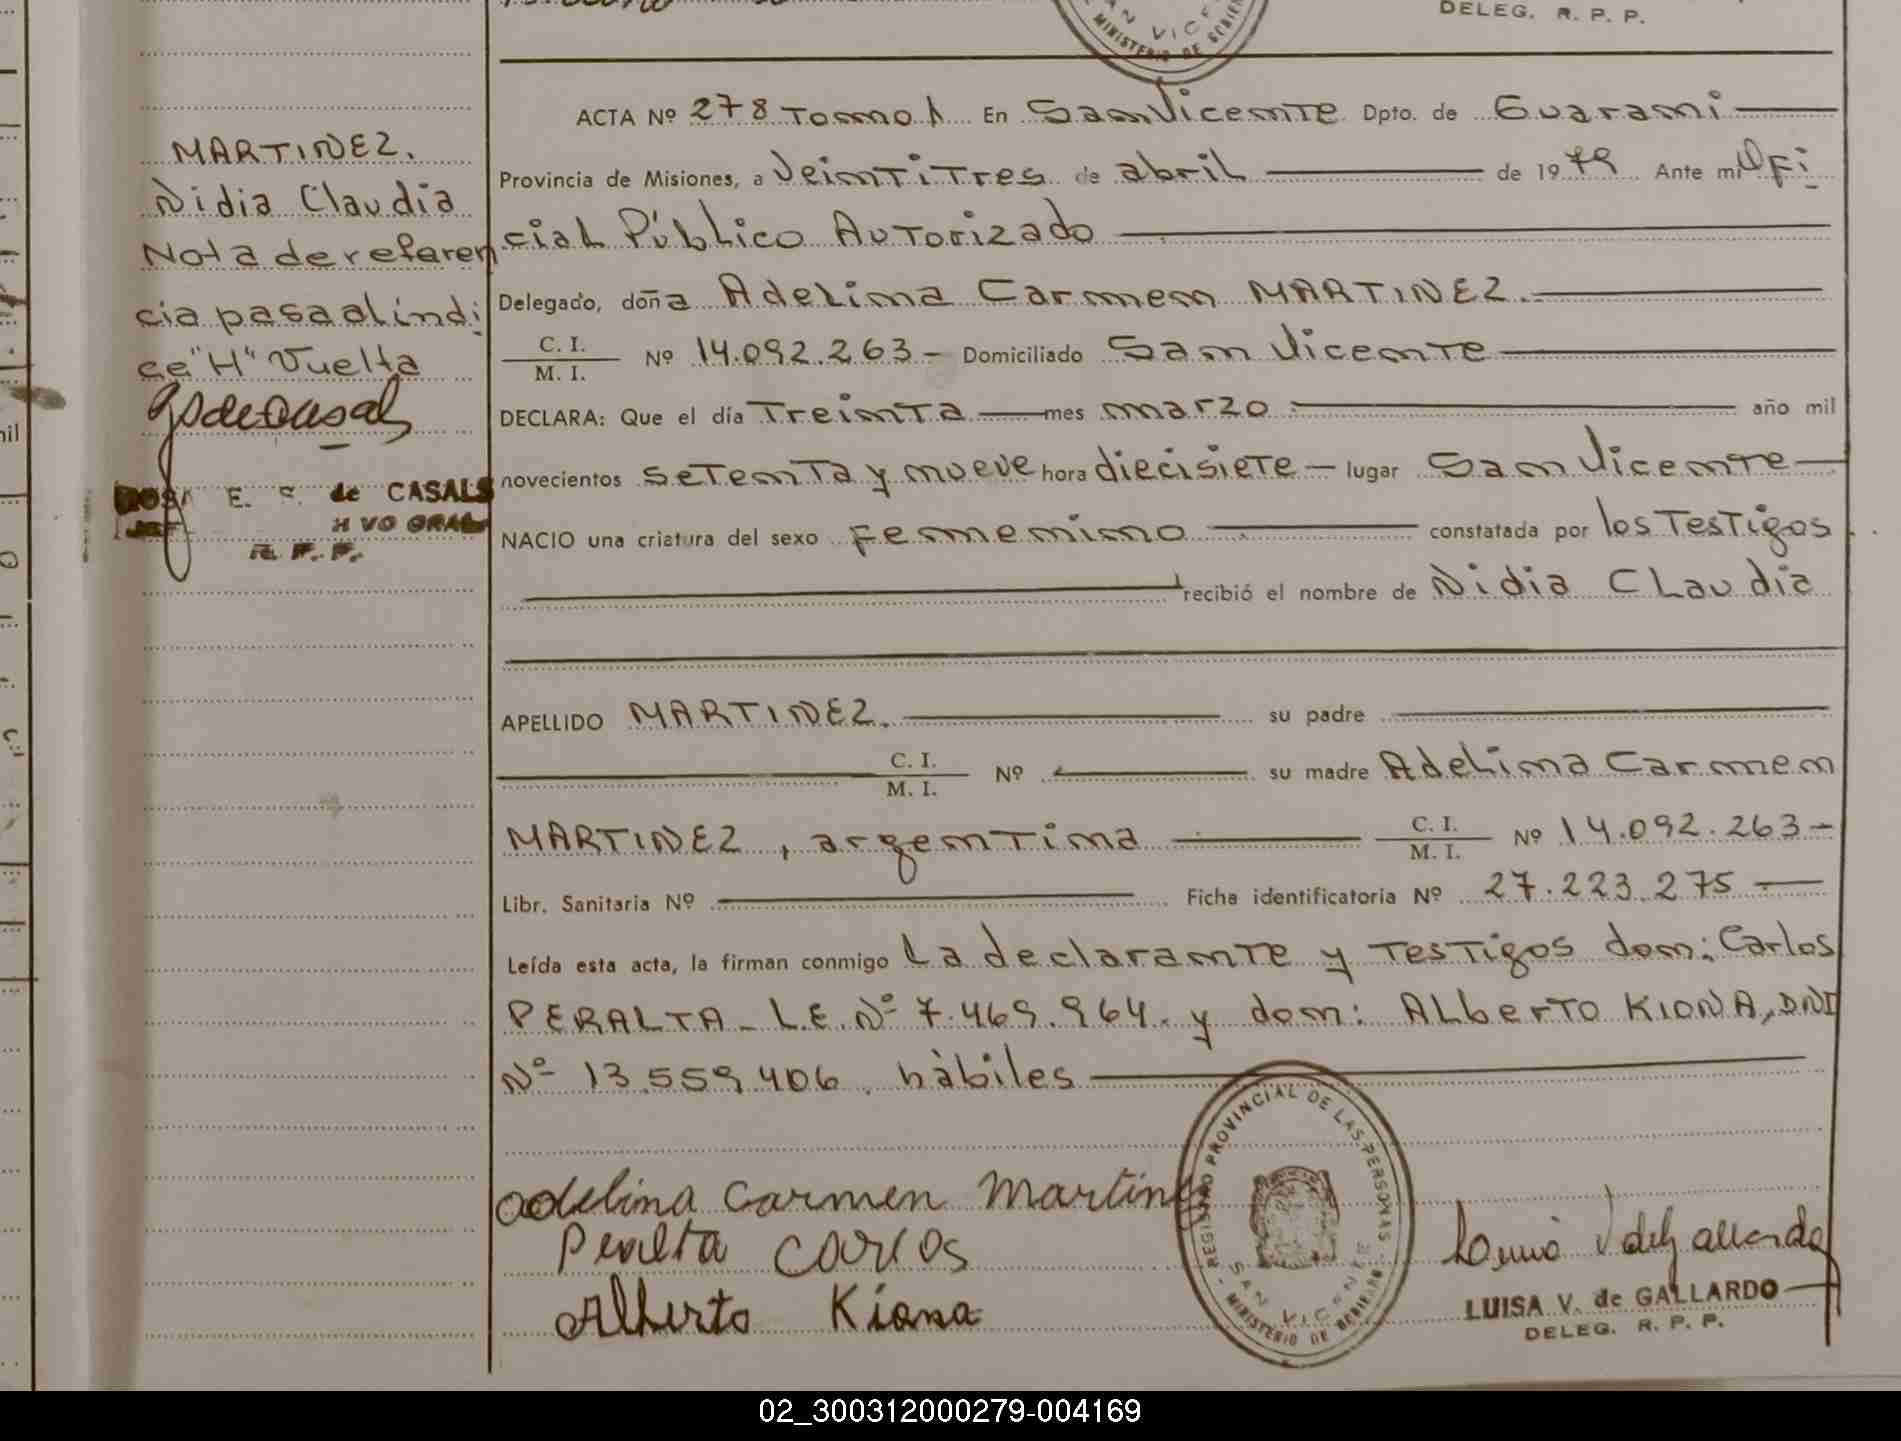 SAN VICE
MINISTERIO DE GOBIER
DELEG. R. P. P.
ACTA Nº 278 Tomo 1 En San Vicente Dpto. de Guaraní
Provincia de Misiones, a Veintitres de abril de 1979 Ante mi Ofi
cial Público Autorizado
Delegado, doña Adelina Carmen MARTINEZ.
C. I.
M. I. Nº 14.092.263- Domiciliado San Vicente
DECLARA: Que el día Treinta mes marzo año mil
novecientos setenta y nueve hora diecisiete lugar San Vicente
NACIO una criatura del sexo femenino constatada por los Testigos
recibió el nombre de Nidia Claudia
APELLIDO MARTINEZ. su padre
C. I.
M. I. Nº su madre Adelina Carmen
MARTINEZ, argentina C. I.
M. I. Nº 14.092.263-
Libr. Sanitaria Nº Ficha identificatoria Nº 27.223.275
Leída esta acta, la firman conmigo La declarante y Testigos don: Carlos
PERALTA - L.E. Nº 7.469.964. y don: Alberto KIONA, DNI
Nº 13.559.406. hàbiles
adelina Carmen Martinez
Peralta Carlos
Alberto Kiona
REGISTRO PROVINCIAL DE LAS PERSONAS
SAN VICENTE
MINISTERIO DE GOBIERNO
LUISA V. de GALLARDO
DELEG. R. P. P.
MARTINEZ.
Nidia Claudia
Nota de referen
cia pasa al indi
ce "H" Vuelta
ROSA E. S. de CASALS
R. P. P.
nil
02_300312000279-004169